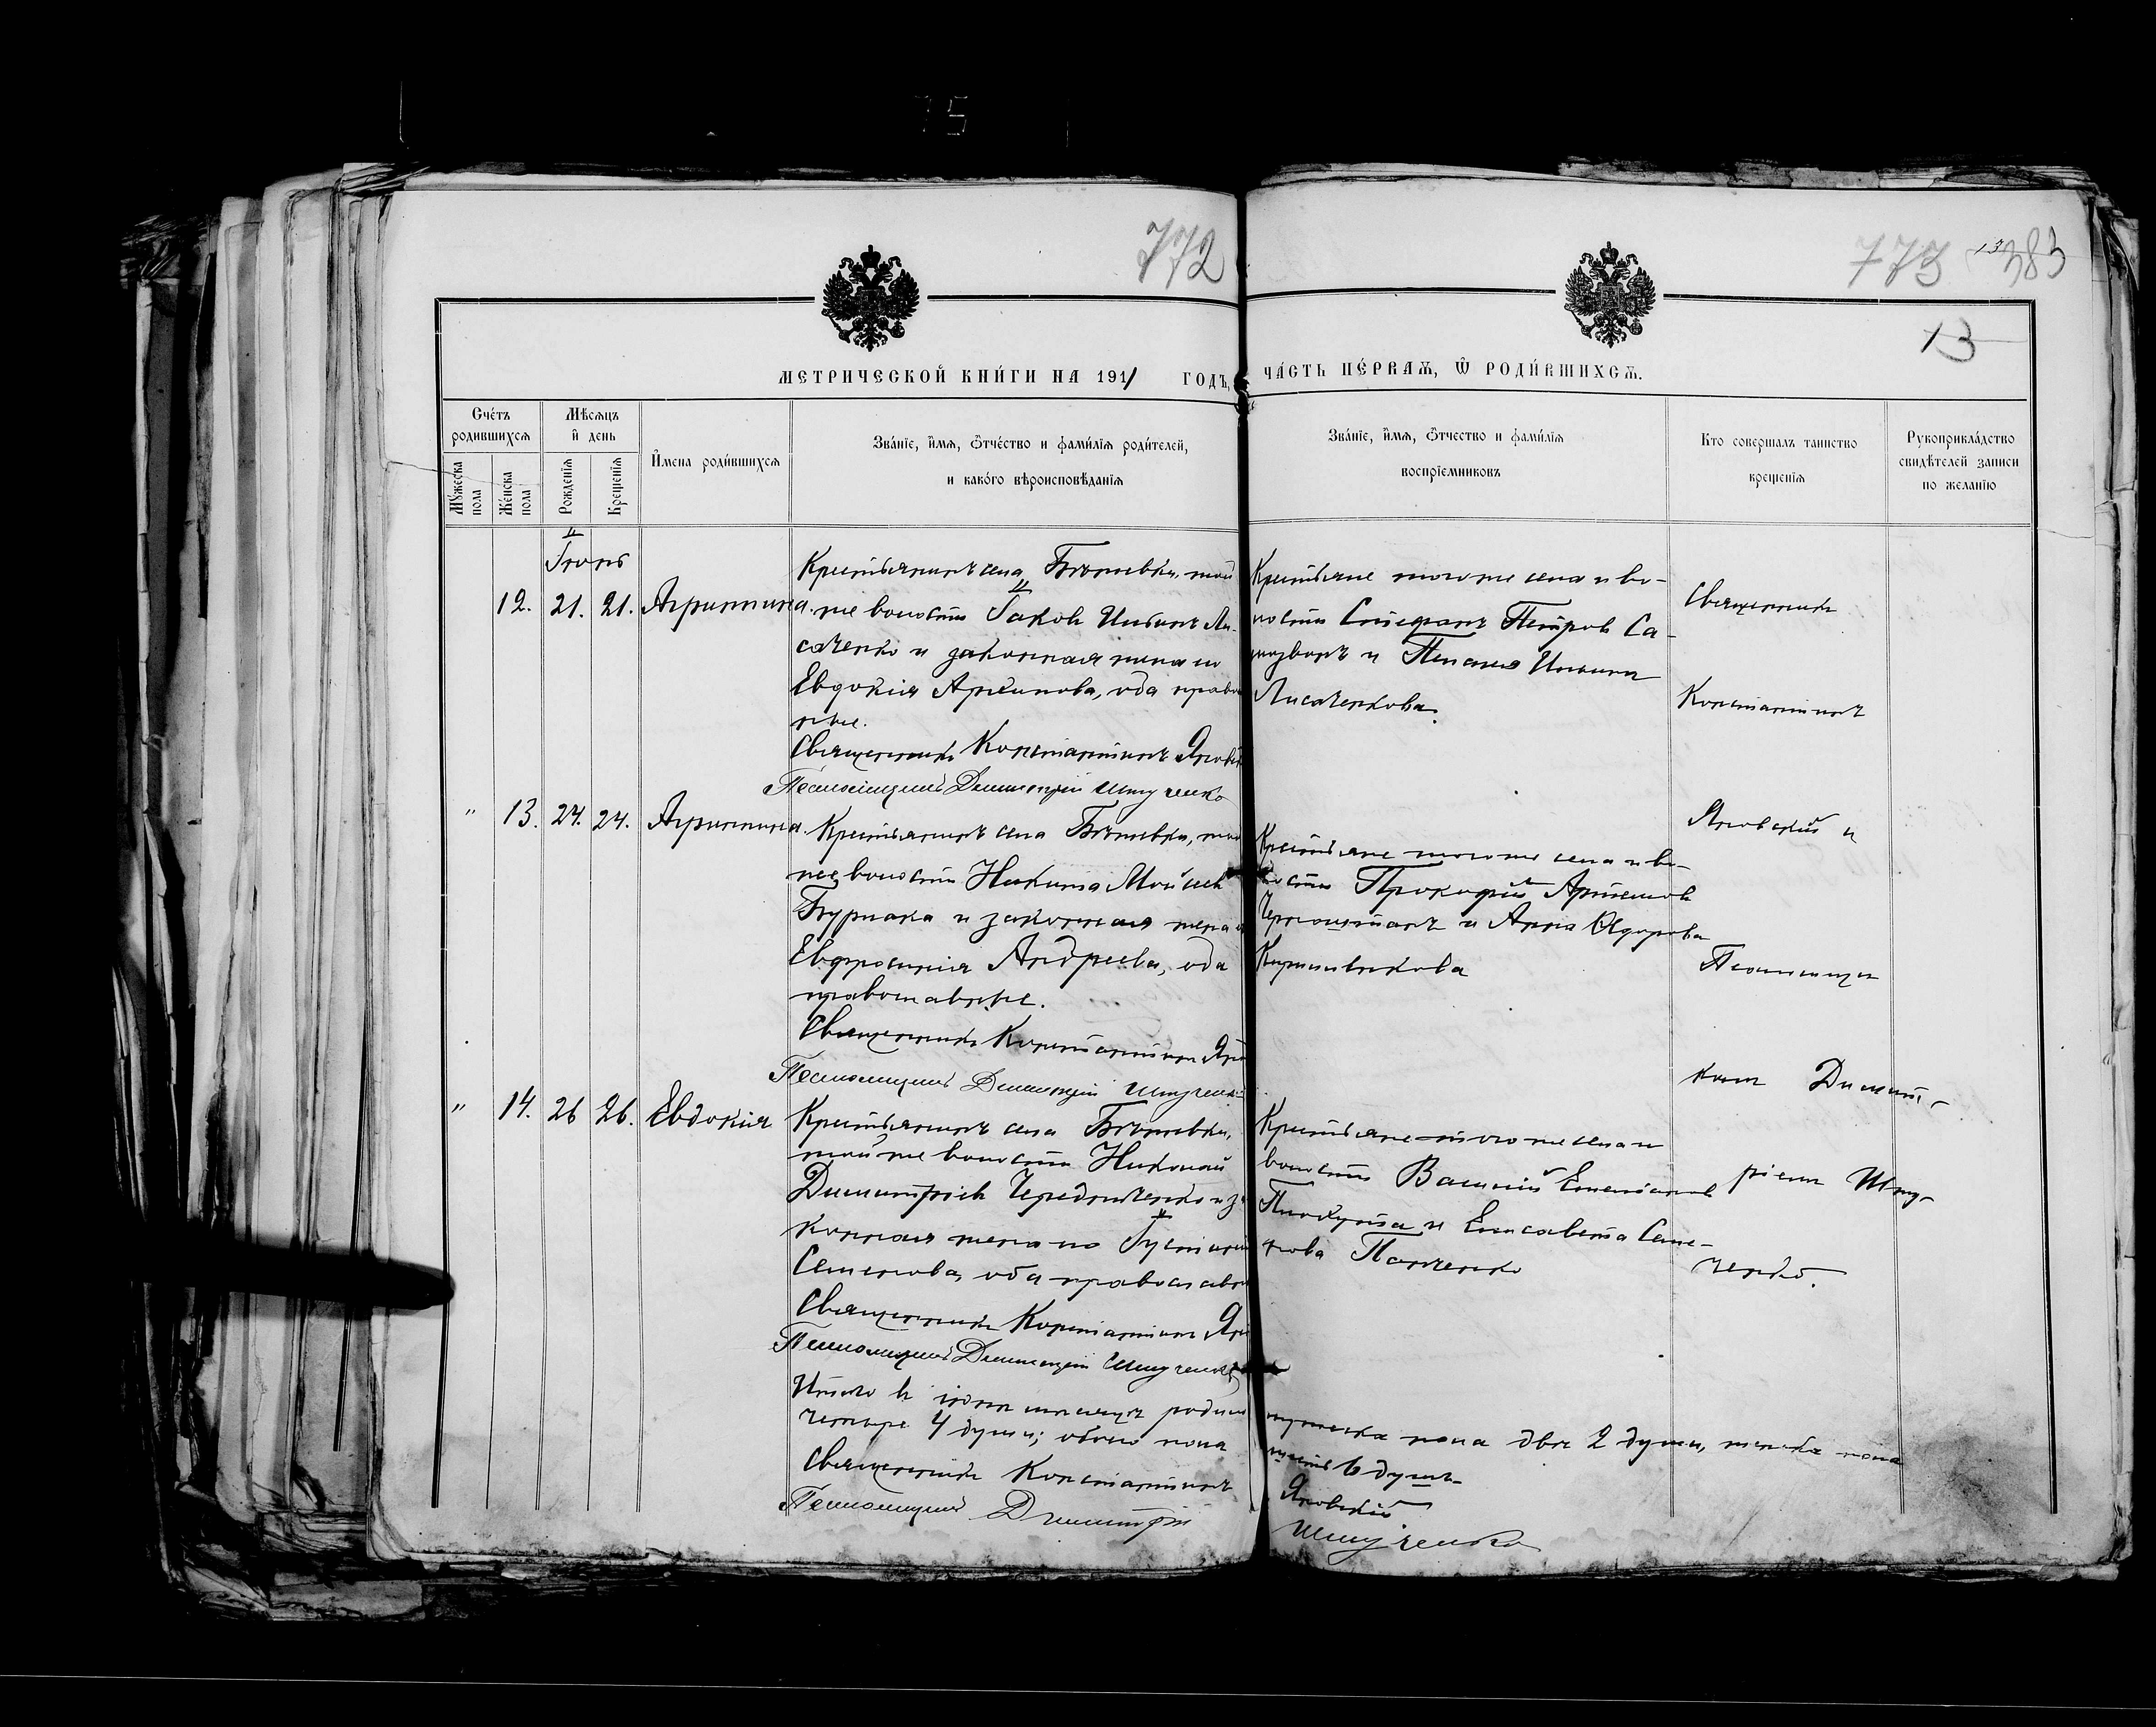 772
773
383
13
МЕТРИЧЕСКОЙ КНИ́ГИ НА 1911 ГОДЪ, ЧА́СТЬ ПЕ́РВАѦ, Ѽ РОДИ́ВШИХСѦ.
Сче́тъ родившихсѧ
Мꙋ́жеска пола
Же́нска пола
Мѣсѧцъ и҆ день
Рожденїѧ
Крещенїѧ
И҆мена роди́вшихсѧ
Зва́нїе, и҆мѧ, ѻ҆тче́ство и фами́лїѧ роди́телей,
и како́го вѣроисповѣ́данїѧ
Зва́нїе, и҆мѧ, ѻ҆тчество и фами́лїѧ
воспрїемниковъ
Кто совершалъ таинство
крещенїѧ
Рꙋкоприкла́дство
свидѣ́телей записи
по желанїю
Іюнь
12. 21. 21. Агриппина.
Крестьянинъ села Бѣжевки, той
же волости Іаковъ Ильинъ Ли-
саченко и законная жена его
Евдокія Архипова, оба право
ные.
Священникъ Константинъ Янов
Псаломщикъ Димитрій Шпученко
Крестьяне того же села и во-
лости Стефанъ Петровъ Са-
и Пелагія Ильина
Лисаченкова.
" 13. 24. 24. Агриппина.
Крестьянинъ села Бѣжевки, той
же волости Никита Моѵсеевъ
Бурлака и законная жена
Евфросинія Андреева, оба
православные.
Священникъ Константинъ Яно
Псаломщикъ Димитрій Шпученко
Крестьяне того же села и во-
лости Прокофій Артемовъ
и Анна Ѳедорова
" 14. 26 26. Евдокія
Крестьянинъ села Бѣжевки,
той же волости Николай
Димитріевъ Чередниченко и за
конная жена его Іустинія
Семенова, оба православн
Священникъ Константинъ Яно
Псаломщикъ Димитрій Шпученко
Крестьяне того же села и
волости Василій Емеліановъ
и Елисавета Семе-
нова Панченко
Священникъ
Константинъ
Яновскій и
Псаломщи
комъ Димит-
ріемъ Шпу-
ченко.
Итого въ іюнѣ мѣсяцѣ родил мужеска пола двѣ 2 души, женска пола
четыре 4 души; обоего пола шесть 6 душъ
Священникъ Константинъ Яновскій
Псаломщикъ Димитрій Шпученко